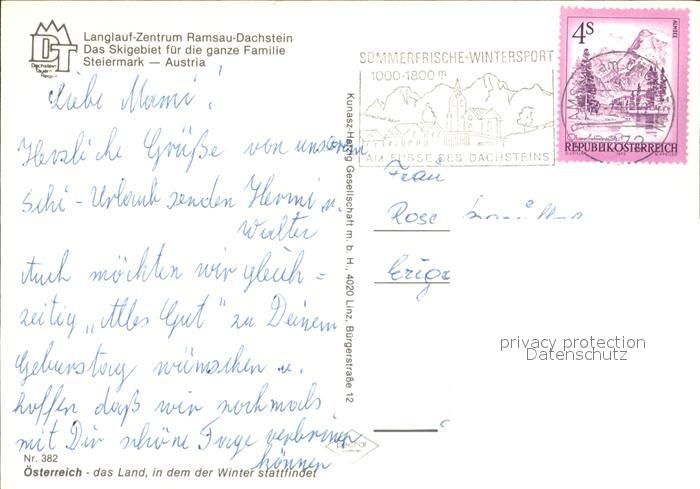 Langlauf-Zentrum Ramsau-Dachstein
Das Skigebiet für die ganze Familie
Steiermark — Austria
DT
Dachstein
Tauern
Region
Liebe Mami!
Herzliche Grüße von unserem
Schi-Urlaub senden Hermi u.
Walter
Auch möchten wir gleich=
zeitig „Alles Gut" zu Deinem
Geburtstag wünschen u.
hoffen daß wir nochmals
mit Dir schöne Tage verbringen
können
Nr. 382
Österreich - das Land, in dem der Winter stattfindet
Kunasz-Herzog Gesellschaft m. b. H., 4020 Linz, Bürgerstraße 12
SOMMERFRISCHE-WINTERSPORT
1000-1800 m
AM FUSSE DES DACHSTEINS
4S
ALMSEE
REPUBLIK ÖSTERREICH
Frau
Rosc
privacy protection
Datenschutz